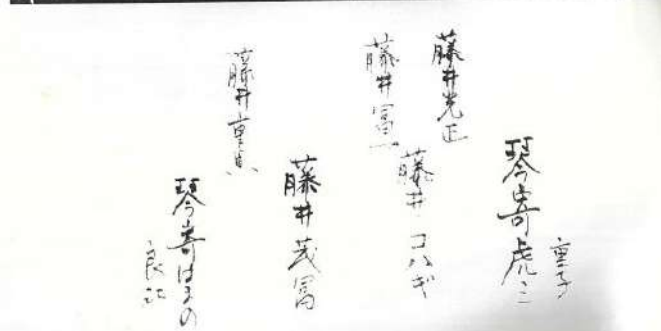 重子
琴寄虎三
藤井光正
藤井コハギ
藤井冨一
藤井茂冨
藤井重良
琴寄はまの
良江